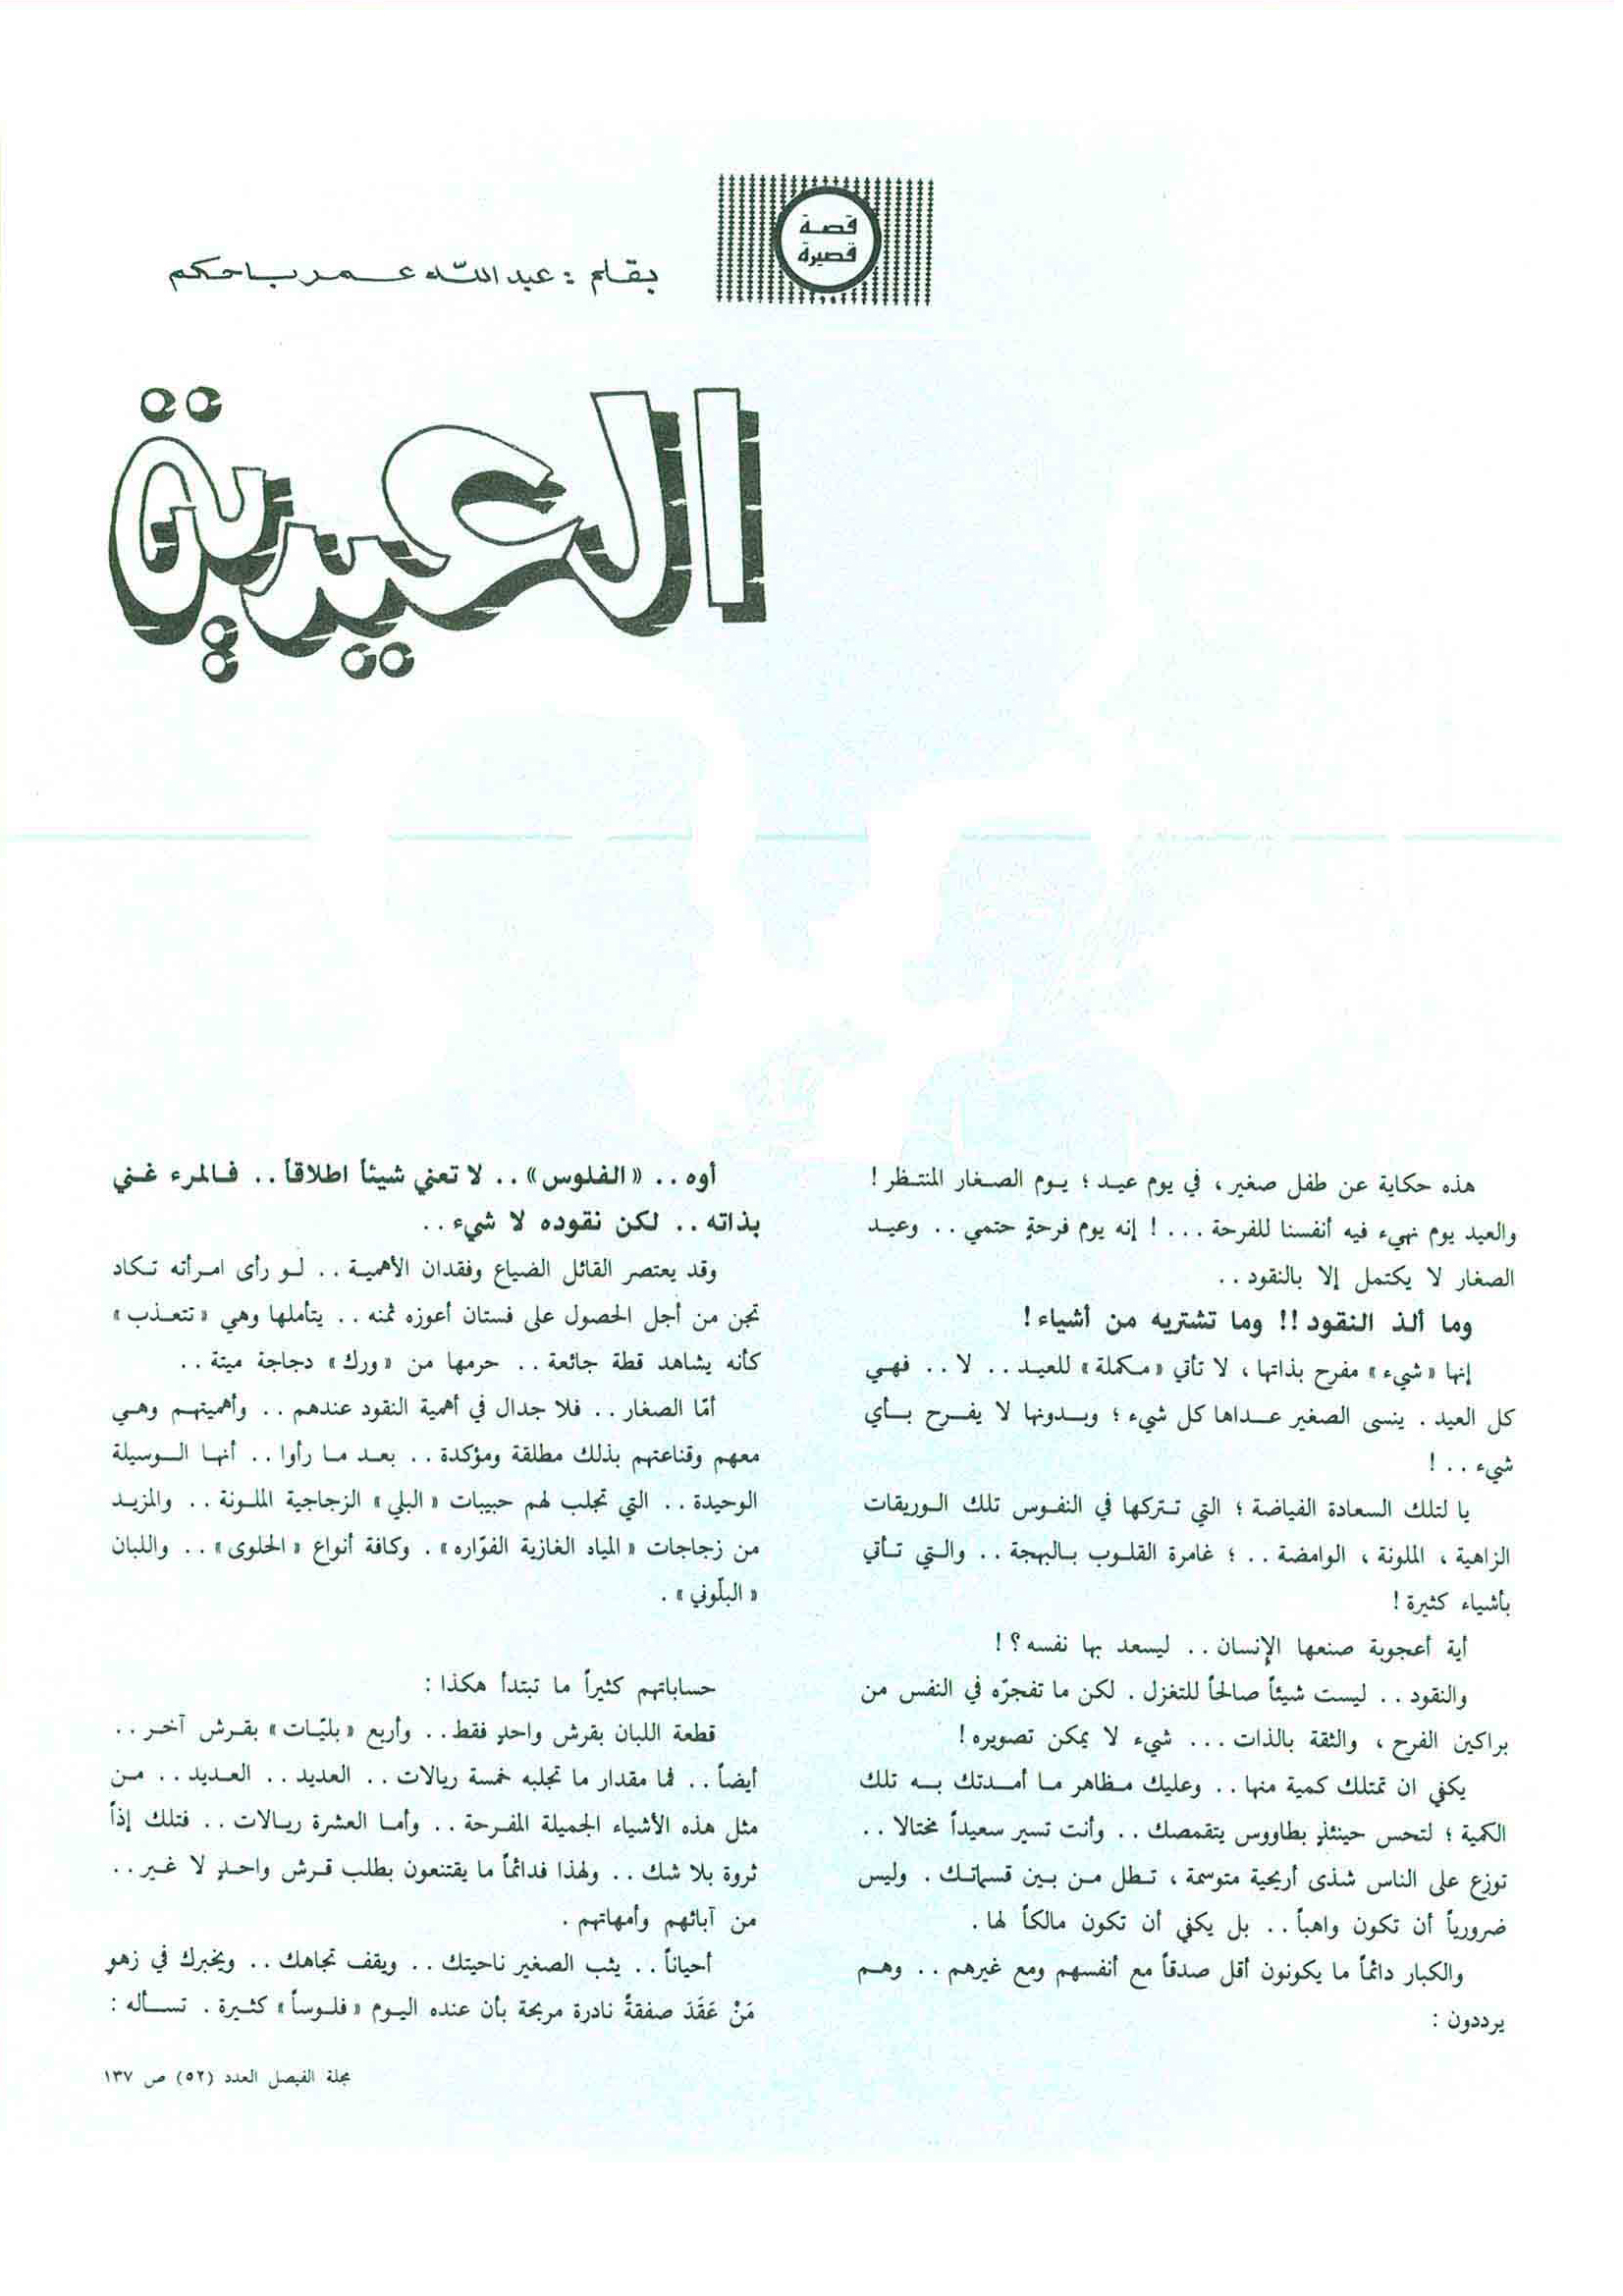 قصة
قصيرة
بقلم : عبد الله عمر باحكم
العيدية
هذه حكاية عن طفل صغير ، في يوم عيد ؛ يوم الصغار المنتظر !
والعيد يوم نهيء فيه أنفسنا للفرحة ... ! إنه يوم فرحةٍ حتمي .. وعيد
الصغار لا يكتمل إلا بالنقود ..
وما ألذ النقود !! وما تشتريه من أشياء !
إنها «شيء» مفرح بذاتها ، لا تأتي «مكملة» للعيد .. لا .. فهي
كل العيد . ينسى الصغير عداها كل شيء ؛ وبدونها لا يفرح بأي
شيء .. !
يا لتلك السعادة الفياضة ؛ التي تتركها في النفوس تلك الوريقات
الزاهية ، الملونة ، الوامضة .. ؛ غامرة القلوب بالبهجة .. والتي تأتي
بأشياء كثيرة !
أية أعجوبة صنعها الإنسان .. ليسعد بها نفسه ؟ !
والنقود .. ليست شيئاً صالحاً للتغزل . لكن ما تفجرّه في النفس من
براكين الفرح ، والثقة بالذات ... شيء لا يمكن تصويره !
يكفي ان تمتلك كمية منها .. وعليك مظاهر ما أمدتك به تلك
الكمية ؛ لتحس حينئذٍ بطاووس يتقمصك .. وأنت تسير سعيداً مختالا ..
توزع على الناس شذى أريحية متوسمة ، تطل من بين قسماتك . وليس
ضرورياً أن تكون واهباً .. بل يكفي أن تكون مالكاً لها .
والكبار دائماً ما يكونون أقل صدقاً مع أنفسهم ومع غيرهم .. وهم
يرددون :
أوه .. «الفلوس» .. لا تعني شيئاً اطلاقاً .. فالمرء غني
بذاته .. لكن نقوده لا شيء ..
وقد يعتصر القائل الضياع وفقدان الأهمية .. لو رأى امرأته تكاد
تجن من أجل الحصول على فستان أعوزه ثمنه .. يتأملها وهي «تتعذب»
كأنه يشاهد قطة جائعة .. حرمها من «ورك» دجاجة ميتة ..
أمّا الصغار .. فلا جدال في أهمية النقود عندهم .. وأهميتهم وهي
معهم وقناعتهم بذلك مطلقة ومؤكدة .. بعد ما رأوا .. أنها الوسيلة
الوحيدة .. التي تجلب لهم حبيبات «البلي» الزجاجية الملونة .. والمزيد
من زجاجات «المياد الغازية الفوّاره» . وكافة أنواع «الحلوى» .. واللبان
«البلّوني» .
حساباتهم كثيراً ما تبتدأ هكذا :
قطعة اللبان بقرش واحدٍ فقط .. وأربع «بليّات» بقرش آخر ..
أيضاً .. فما مقدار ما تجلبه خمسة ريالات .. العديد .. العديد .. من
مثل هذه الأشياء الجميلة المفرحة .. وأما العشرة ريالات .. فتلك إذاً
ثروة بلا شك .. ولهذا فدائماً ما يقتنعون بطلب قرش واحدٍ لا غير ..
من آبائهم وأمهاتهم .
أحياناً .. يثب الصغير ناحيتك .. ويقف تجاهك .. ويخبرك في زهوِ
مَنْ عَقَدَ صفقةً نادرة مربحة بأن عنده اليوم «فلوساً» كثيرة . تسأله :
مجلة الفيصل العدد (٥٢) ص ١٣٧